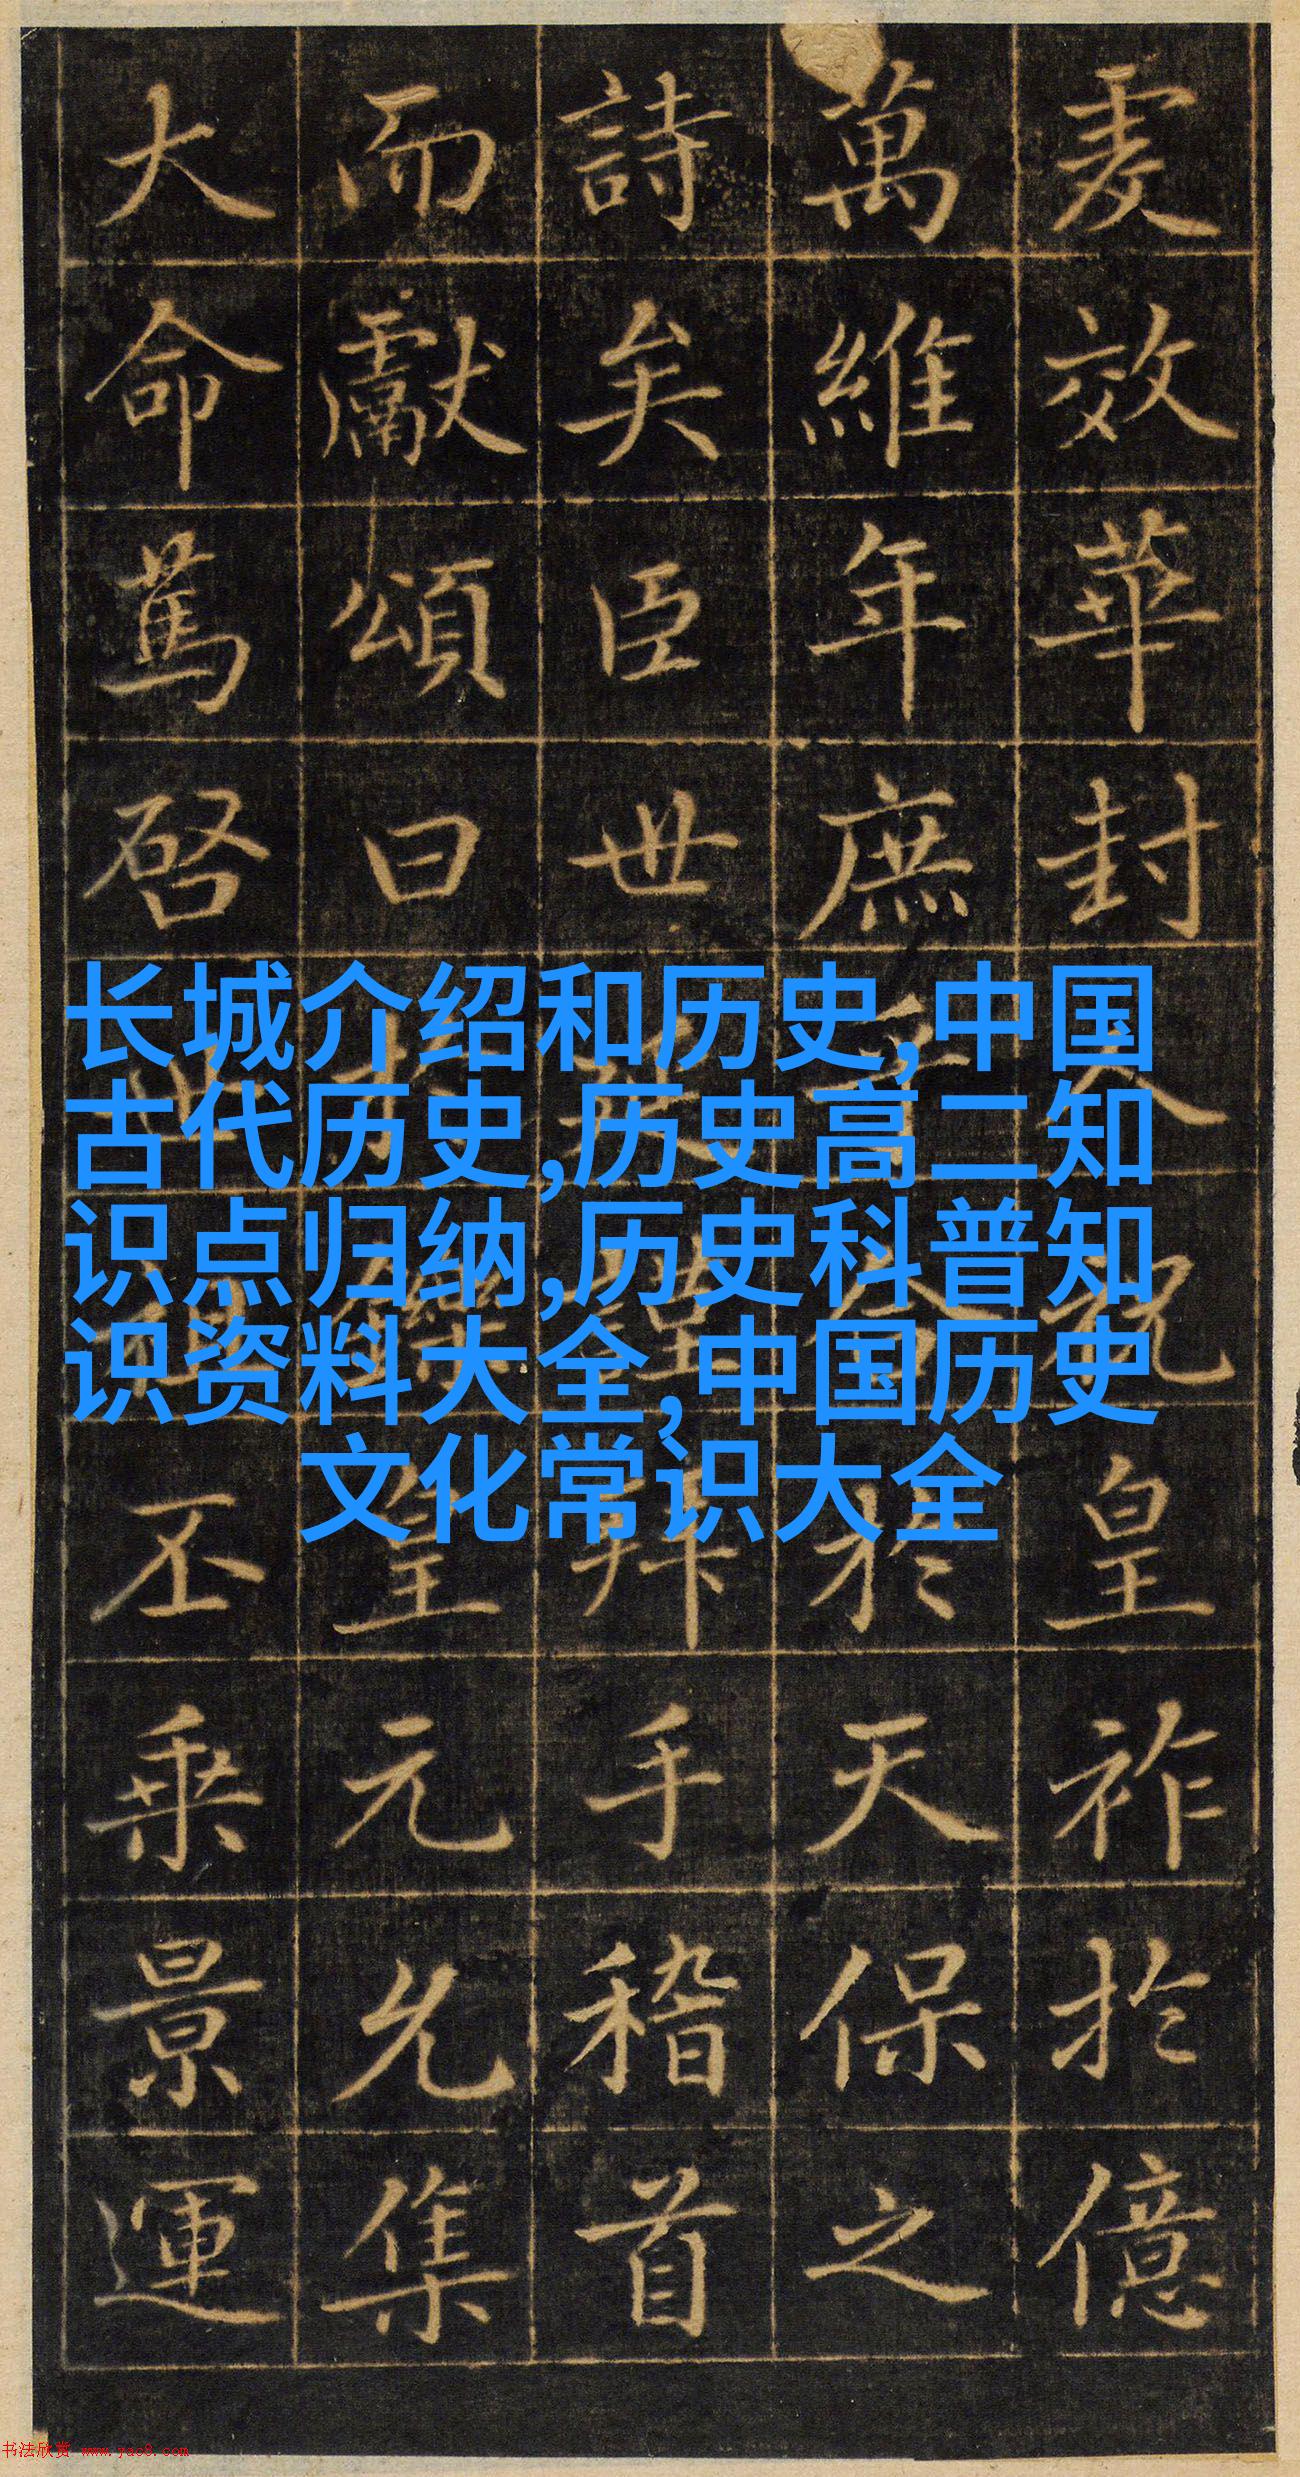 效華封人祝皇祚於億
萬維年庶於天保之
詩矣臣世英謹拜手稽首
而獻頌曰於鑠皇元允集
大命篤啓世祖丕乘景運
长城介绍和历史,中国
古代历史,历史高二知
识点归纳,历史科普知
识资料大全,中国历史
文化常识大全
书法欣赏 www.yac8.com